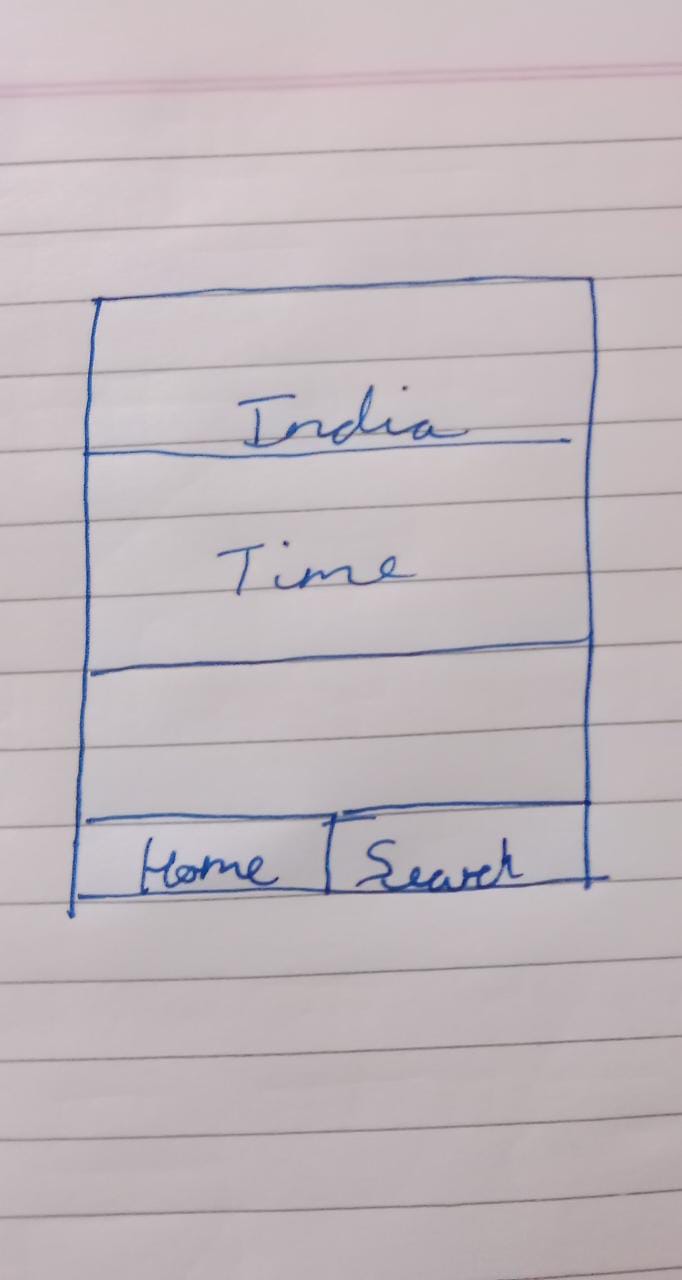 India
Time
Home Search